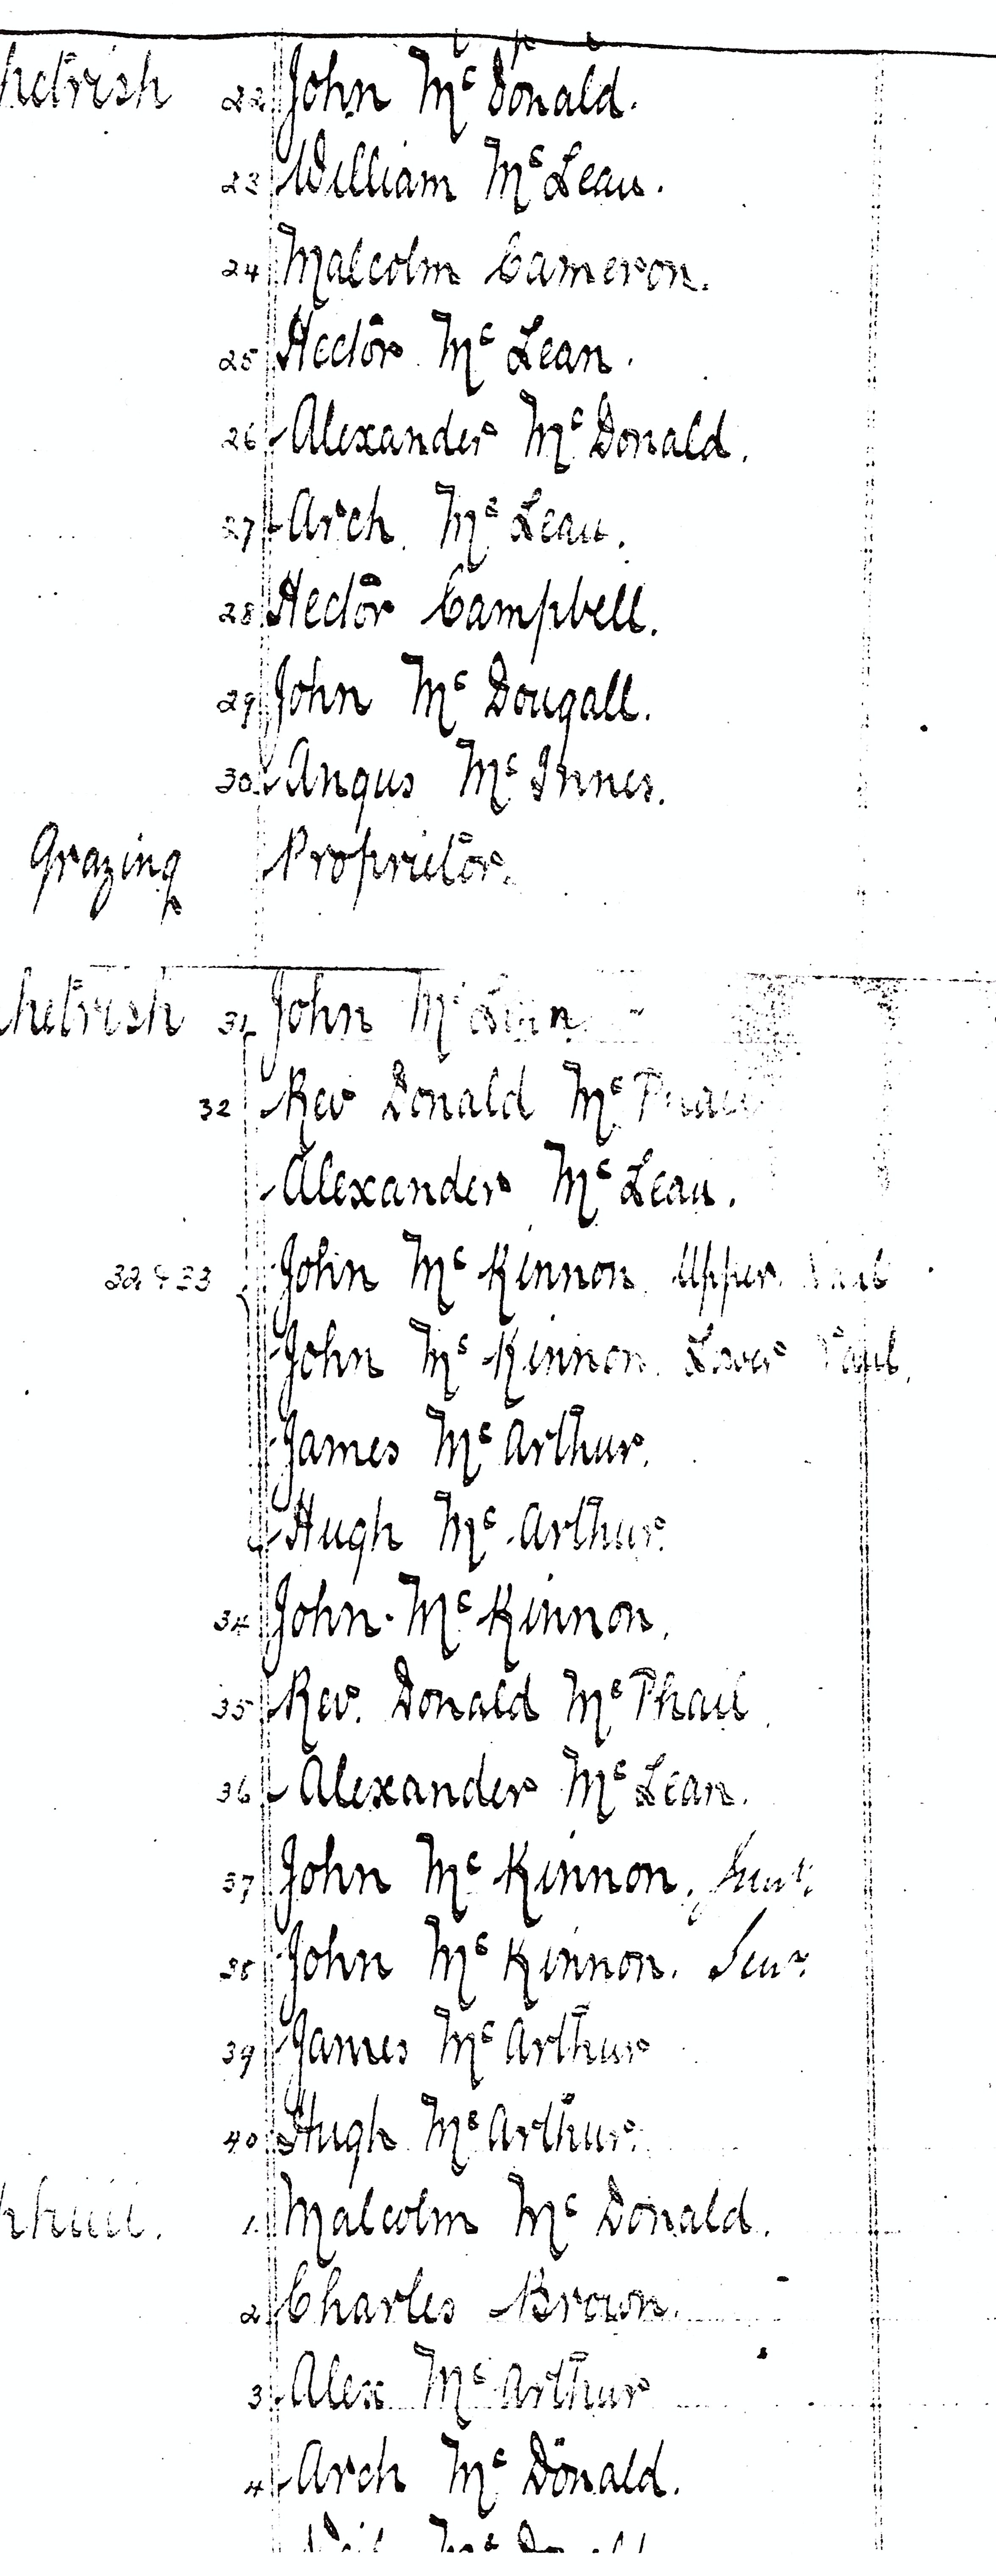 22 John McDonald.
23 William McLean.
24 Malcolm Cameron.
25 Hector McLean.
26 Alexander McDonald.
27 Arch. McLean.
28 Hector Campbell.
29 John McDougall.
30 Angus McInnes.
Grazing Proprietor.
31 John
32 Rev Donald McPhail
Alexander McLean.
32 & 33 John McKinnon Upper
John McKinnon. Lower
James McArthur.
Hugh McArthur.
34 John McKinnon.
35 Rev. Donald McPhail
36 Alexander McLean.
37 John McKinnon,
38 John McKinnon. Senr.
39 James McArthur
40 Hugh McArthur.
1. Malcolm McDonald.
2. Charles Brown.
3 Alex McArthur
4 Arch McDonald.